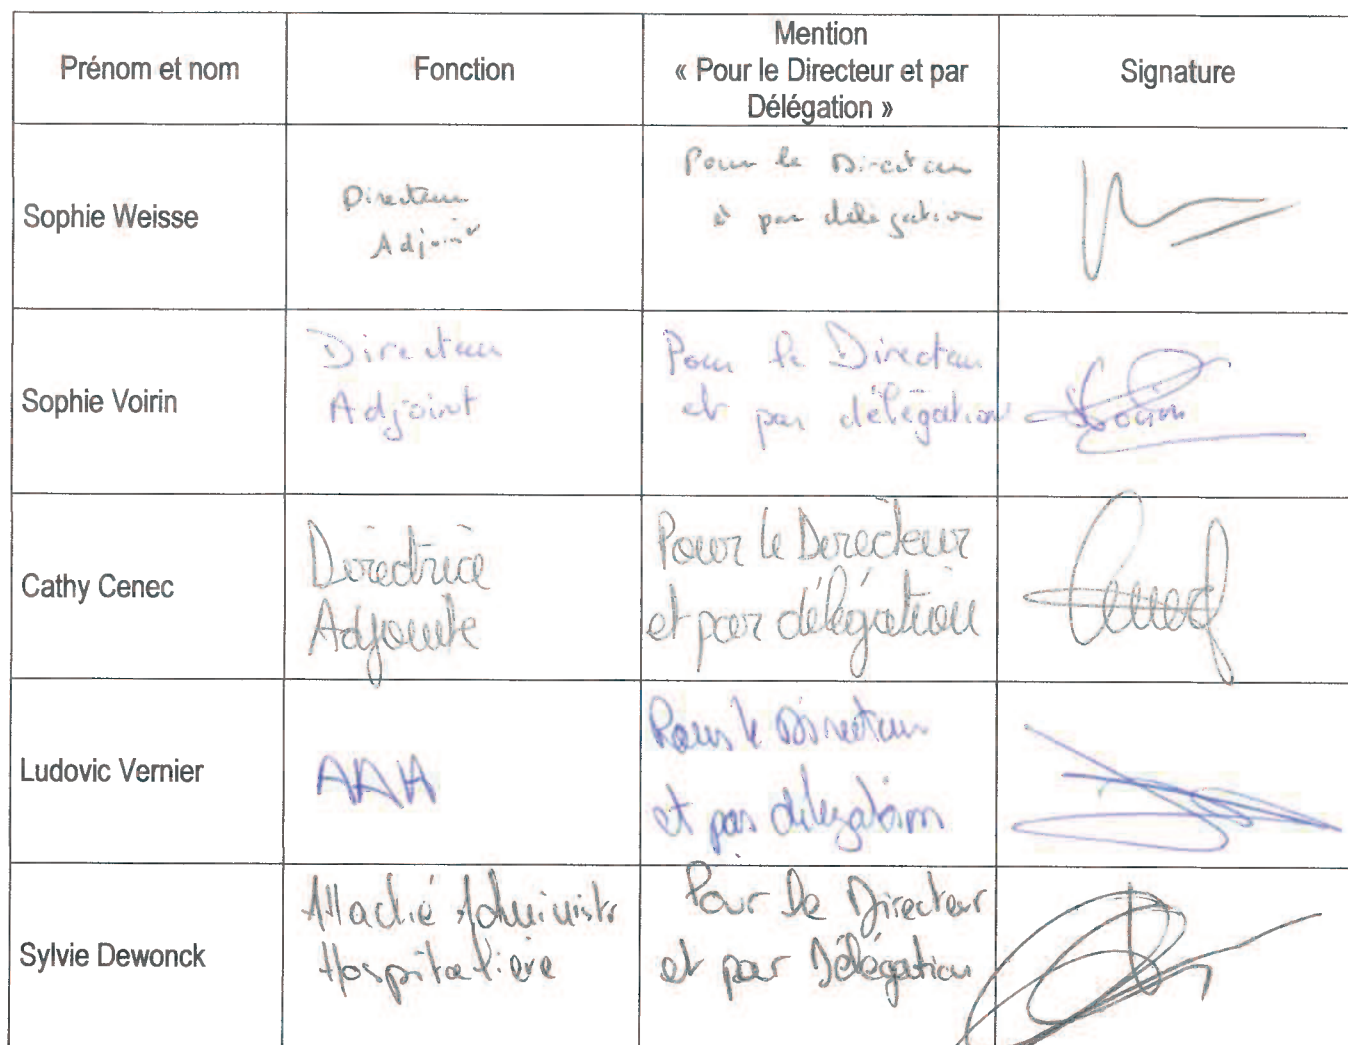 Prénom et nom
Fonction
Mention
« Pour le Directeur et par
Délégation »
Signature
Sophie Weisse
Directeur
Adjoint
Pour le Directeur
et par délégation
Sophie Voirin
Directeur
Adjoint
Pour le Directeur
et par délégation
Voirin
Cathy Cenec
Directrice
Adjointe
Pour le Directeur
et par délégation
Cenec
Ludovic Vernier
AAH
Pour le Directeur
et par délégation
Sylvie Dewonck
Attaché Administr
Hospitalière
Pour le Directeur
et par Délégation